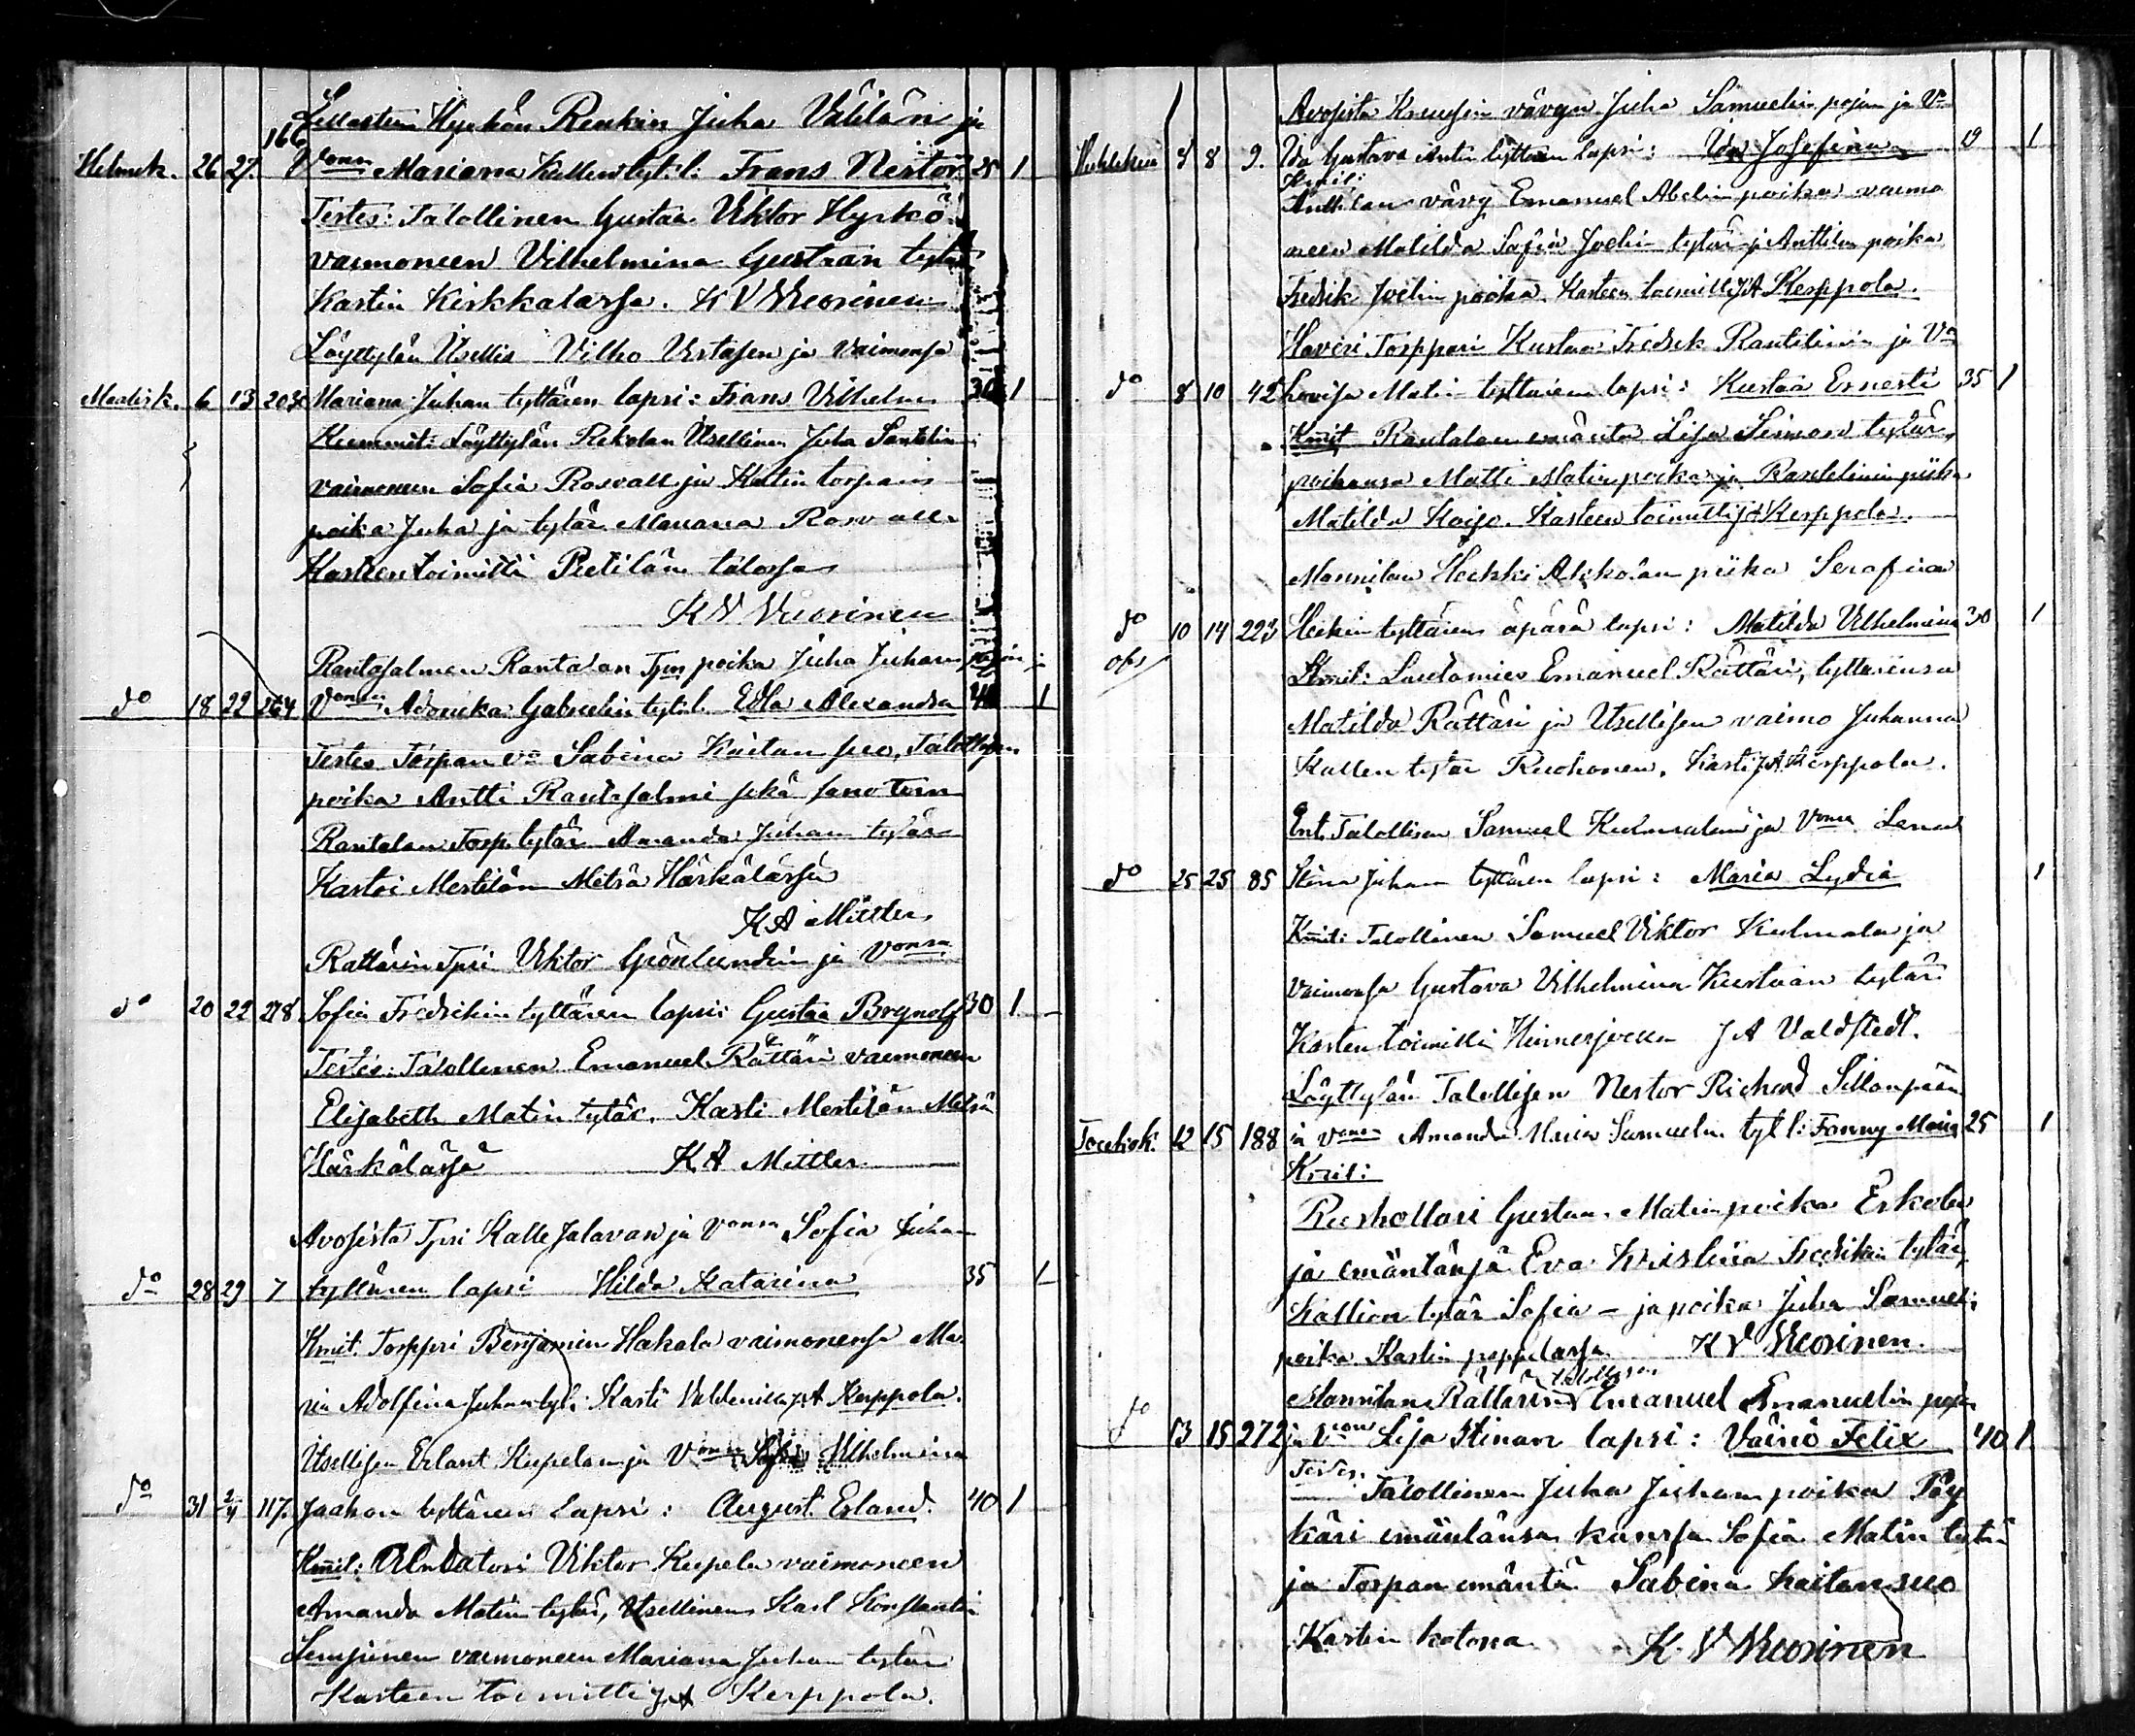 Renkin Juha Välilän ja
166
Helmik. 26 27. Vonsa Mariana Kallen tyt. l: Frans Nestor 25 1
Testes: Talollinen Gustaa Viktor Hyrkö
vaimoneen Vilhelmina Gustaan tytär
Kastin Kirkkalassa. K V Vuorinen
Löyttylän Itsellis Vilho Virtasen ja vaimonsa
Maalisk. 6 13 203 Mariana Juhan tyttären lapsi: Frans Vilhelm 30 1
Kummit: Löyttylän Rekolan Itsellinen Juha Santelin
vaimoneen Sofia Rosvall ja Katin torpan
poika Juha ja tytär Mariana Rosvall
Kasteen toimitti Pietilän talossa
K V Vuorinen
Rantasalmen Rantalan Tpn poika Juha Juhan pojan ja
do 18 22 264 Vonsa Adonika Gabrielin tyt. l. Edla Alexandra 40 1
Testes Torpan vo Sabina Kaitan suo, Talollisen
poika Antti Rantasalmi sekä sanotun
Rantalan Torp. tytär Amanda Juhan tytär
Kastoi Mestilän Metsä Härkälässä
K A Mittler
Rättärin Tpri Viktor Grönlundin ja Vonsa
do 20 22 218 Sofia Fredrikin tyttären lapsi: Gustaa Brynolf 30 1
Testes: Talollinen Emanuel Rättäri vaimoneen
Elisabeth Matin tytär. Kasti Mestilän Metsä
Härkälässä K A Mittler
Avosista Tpri Kalle Jalavan ja Vonsa Sofia Juhan
do 28 29 7 tyttären lapsi Hilda Katarina 35 1
Kmit. Torppri Benjamin Hakala vaimonensa Ma
ria Adolfina Juhan tyt: Kasti J A Kerppola.
Itsellisen Erlant Kupelan ja Vonsa Vilhelmina
do 31 2/4 117. Jaakon tyttären lapsi: August Erland. 40 1
Kmit: Viktor Kupela vaimoneen
Amanda Matin tytär, Itsellinen Karl Konstantin
vaimoneen Mariana Juhan tytär
Kasteen toimitti J A Kerppola.
Avosista Kreusin vävyn Juha Samuelin pojan ja Vo
Huhtikuu 4 8 9. Ida Gustava Antin tyttären lapsi: Ida Josefina 1
Kmit:
Anttilan vävy Emanuel Abelin poika vaimo
neen Matilda Sofia Joelin tytär ja Anttilan poika
Fredrik Joelin poika. Kasteen toimitti J A Kerppola.
Torppari Kustaa Fredrik Rantelinin ja Vo
do 8 10 42 Lovisa Matin tyttären lapsi: Kustaa Ernesti 35 1
Kmit Rantalan emäntä Lisa Simon tytär,
poikansa Matti Matin poika ja Rantelinin piika
Matilda Koijo. Kasteen toimitti J A Kerppola.
Mannilan Heikki Alikolan piika Serafina
do 10 14 223 Heikin tyttären äpärä lapsi: Matilda Vilhelmina 30 1
Kmit: Lautamies Emanuel Rättäri, tyttärensä
Matilda Rättäri ja Itsellisen vaimo Juhanna
Kallen tytär Ruohonen. Kasti J A Kerppola.
Ent. Talollisen Samuel Kulmalan ja Vonsa Lena
do 25 25 85 Stina Juhan tyttären lapsi: Maria Lydia 1
Kmit: Talollinen Samuel Viktor Kulmala ja
Vaimonsa Gustava Vilhelmina Kustaan tytär
Kasten toimitti Hinnerjoella J A Valdstedt.
Löyttylän Talollisen Nestor Richard Sillanpään
Toukok. 12 15 188 ja vonsa Amanda Maria Samuelin tyt. l: Fanny Maria 25 1
Kmit:
Rusthollari Gustaa Matin poika Erkola
ja emäntänsä Eva Kristiina Fredrikin tytär,
Kallion tytär Sofia – ja poika Juha Samuelin
poika Kastin pappilassa. K V Vuorinen.
talollisen
Mannilan Rättärin Emanuel Emanuelin pojan
do 13 15 272 ja Vonsa Lisa Stinan lapsi: Väinö Felix 40 1
Testes
Talollinen Juha Juhan poika Päy
käri emäntänsä kanssa Sofia Matin tytär
ja Torpan emäntä Sabina Kaitansuo
Kastin kotona K. V Vuorinen